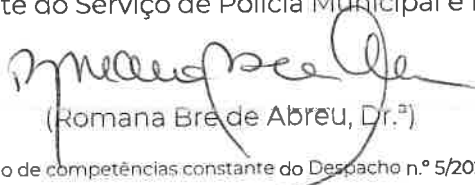 te do Serviço de Polícia Municipal e
(Romana Bre de Abreu, Dr.ª)
o de competências constante do Despacho n.º 5/20